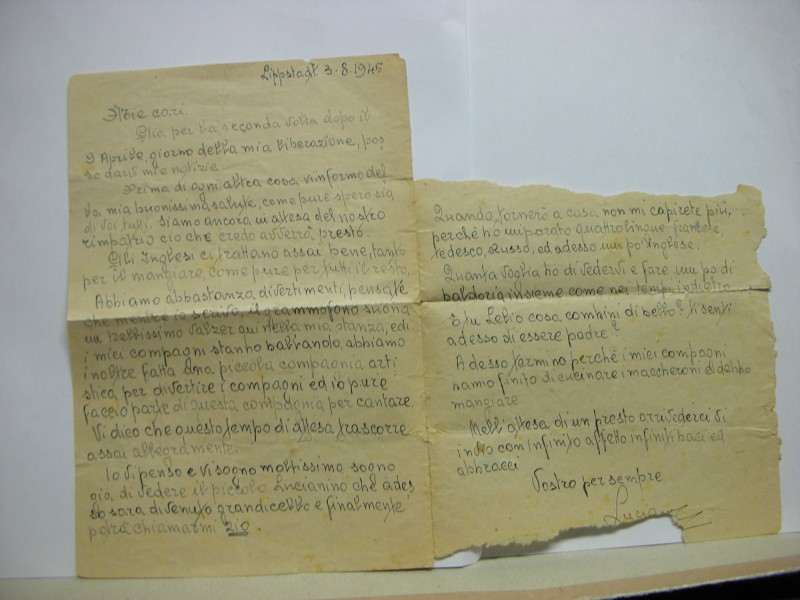 Lippstadt 3-8-1945
Miei cari.
Già per la seconda volta dopo il
9 Aprile, giorno della mia liberazione, pos
so darvi mie notizie.
Prima di ogni altra cosa v'informo del
la mia buonissima salute, come pure spero sia
di voi tutti. Siamo ancora in attesa del nostro
rimpatrio ciò che credo avverrà presto.
Gli Inglesi ci trattano assai bene, tanto
per il mangiare, come pure per tutti il resto,
Abbiamo abbastanza divertimenti, pensate
che mentre io scrivo, il grammofono suona
un bellissimo valzer qui nella mia stanza, ed i
i miei compagni stanno ballando, abbiamo
inoltre fatta una piccola compagnia arti
stica per divertire i compagni ed io pure
faccio parte di questa compagnia per cantare.
Vi dico che questo tempo di attesa trascorre
assai allegramente.
Io vi penso e vi sogno moltissimo sogno
già di vedere il piccolo Lucianino che ades
so sara divenuto grandicello e finalmente
potrà chiamarmi zio
Quando tornerò a casa non mi capirete più,
perché ho imparato quattro lingue francese,
tedesco, Russo, ed adesso un po' Inglese.
Quanta voglia ho di vedervi e fare un po di
baldoria insieme come nei tempi indietro
tu Lelio cosa combini di bello? ti senti
adesso di essere padre?
Adesso termino perché i miei compagni
hanno finito di cucinare i maccheroni e debbo
mangiare
Nell'attesa di un presto arrivederci vi
invio con infinito affetto infiniti baci ed
abbracci
Vostro per sempre
Luciano